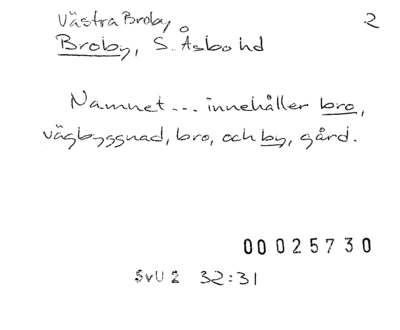 Västra Broby 2
Broby, S. Åsbo hd
Namnet... innehåller bro,
vägbyggnad, bro, och by, gård.
00025730
SvU 2 32:31